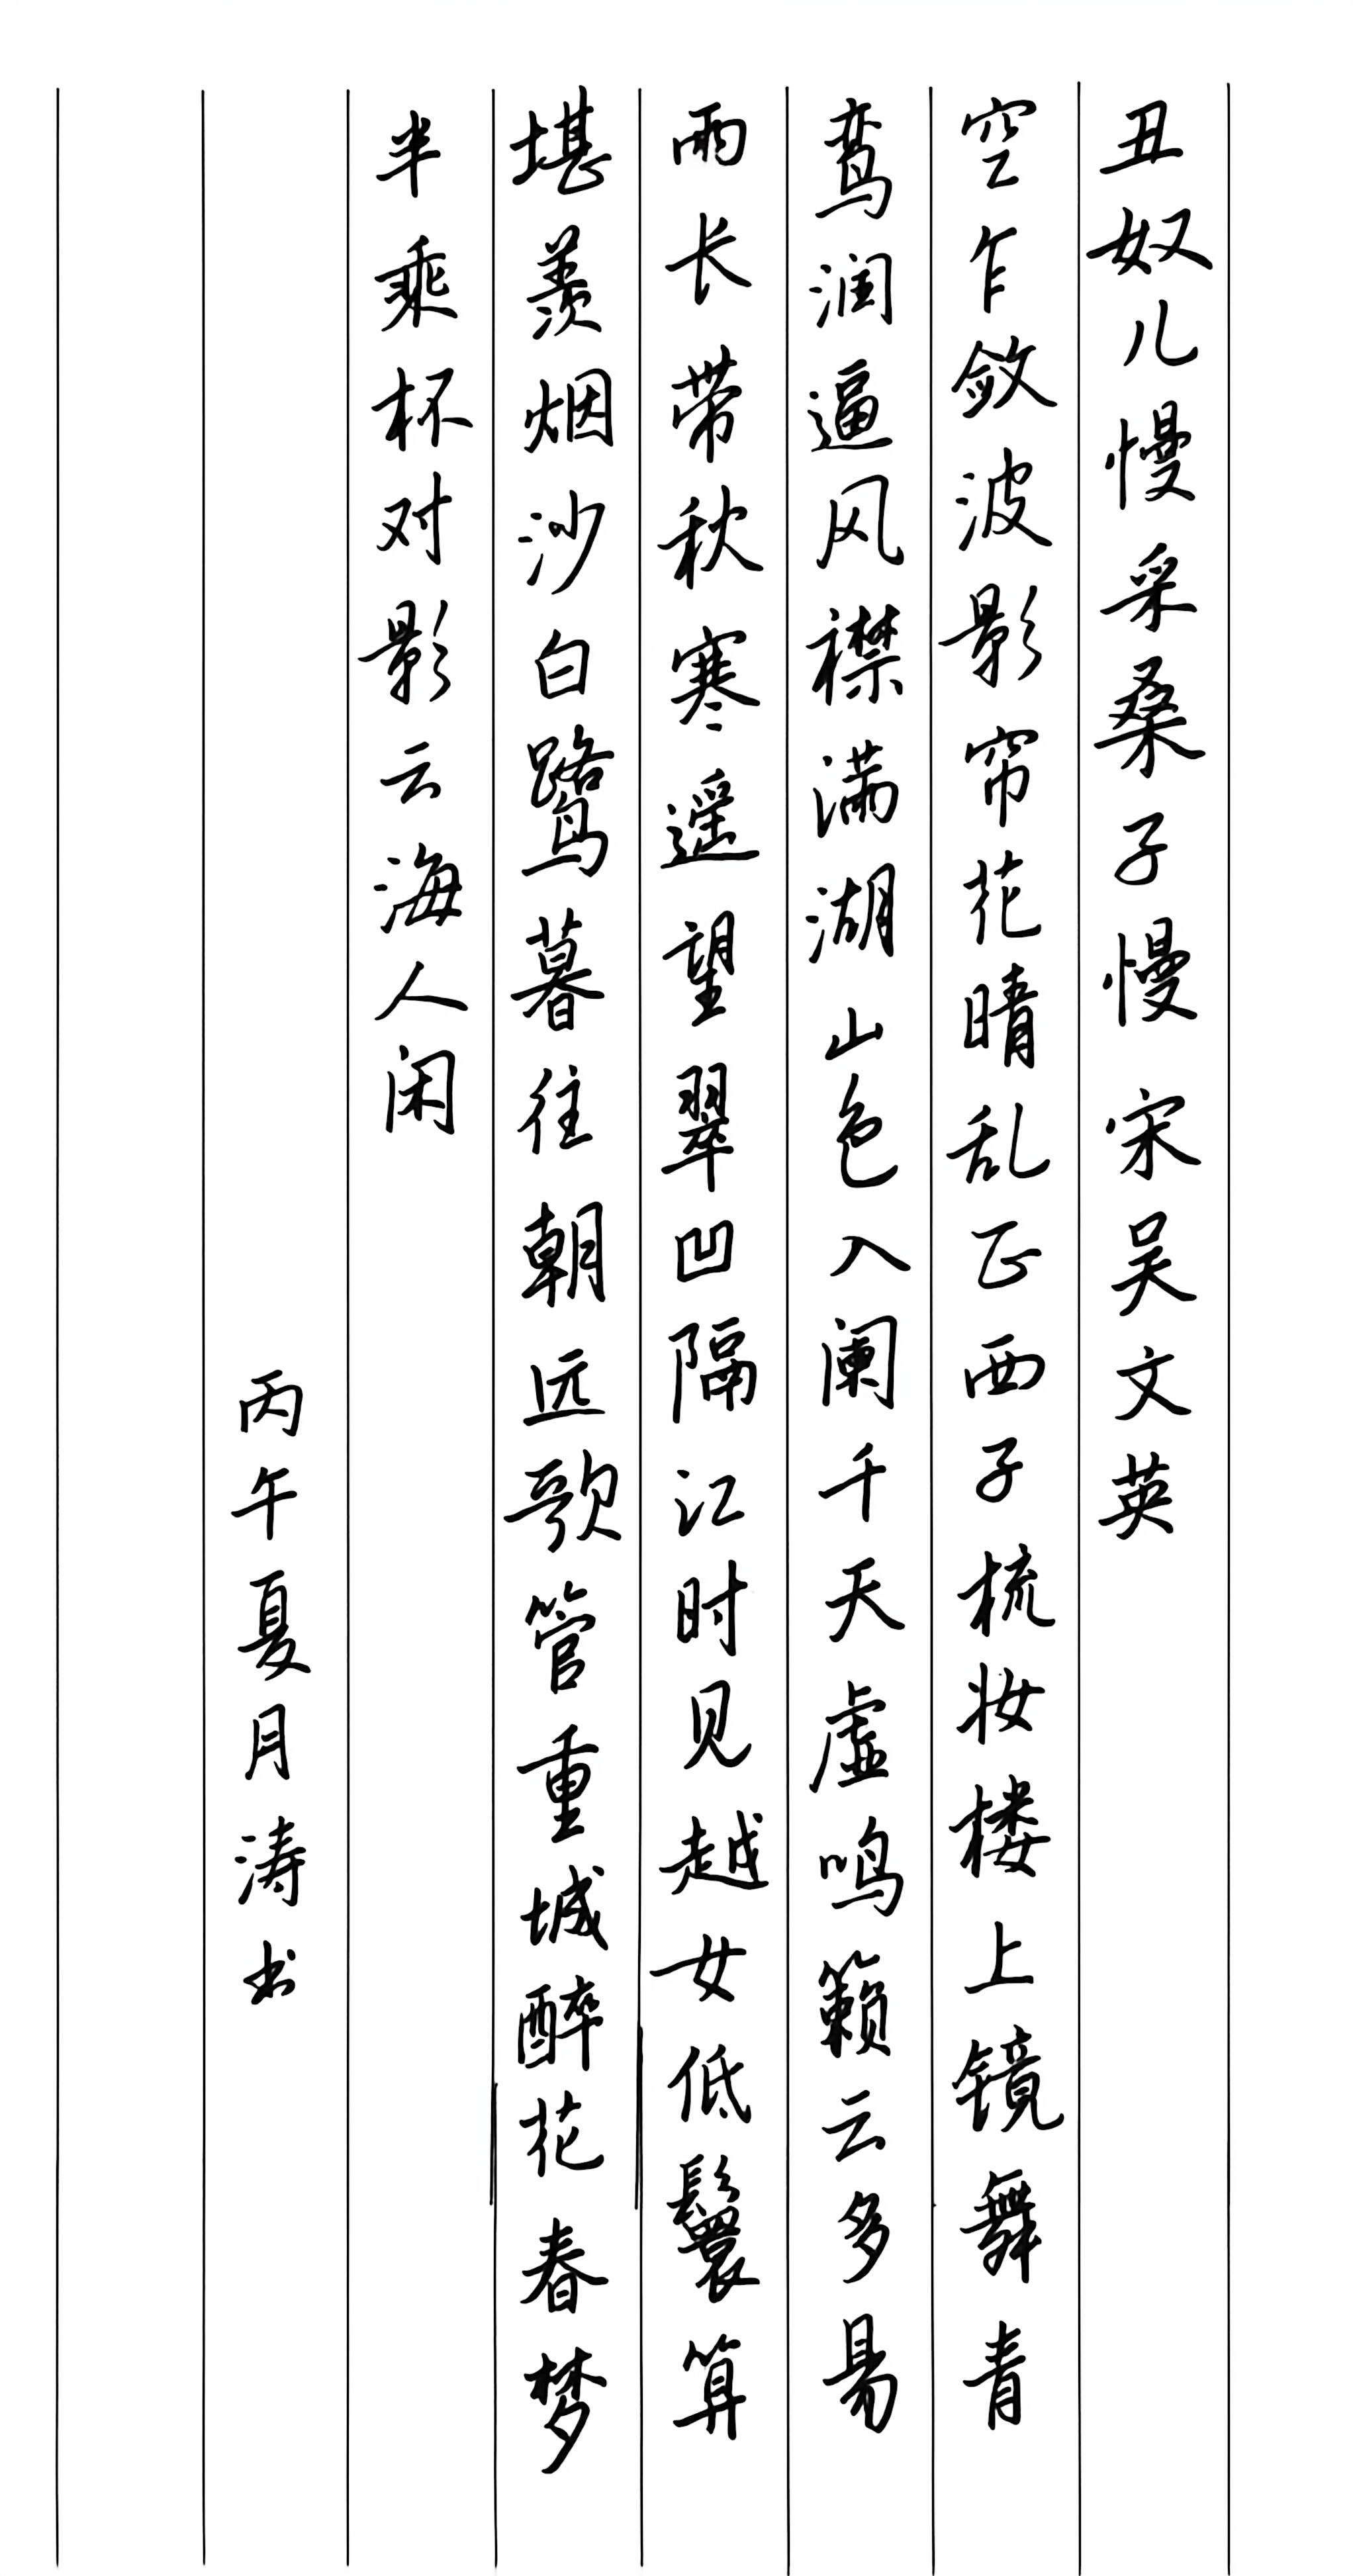 丑奴儿慢采桑子慢宋吴文英
空乍敛波影帘花晴乱正西子梳妆楼上镜舞青
鸾润逼风襟满湖山色入阑干天虚鸣籁云多易
雨长带秋寒遥望翠凹隔江时见越女低鬟算
堪羡烟沙白鹭暮往朝还歌管重城醉花春梦
半乘杯对影云海人闲
丙午夏月涛书